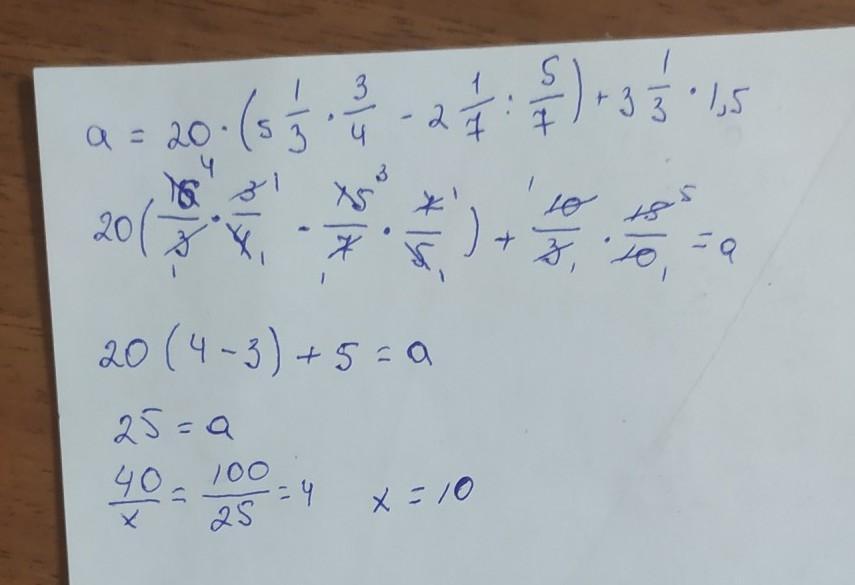 a = 20 · (5 1/3 · 3/4 - 2 1/7 : 5/7) + 3 1/3 · 1,5
20 (16/3 · 3/4 - 15/7 · 7/5) + 10/3 · 15/10 = a
20 (4 - 3) + 5 = a
25 = a
40/x = 100/25 = 4 x = 10